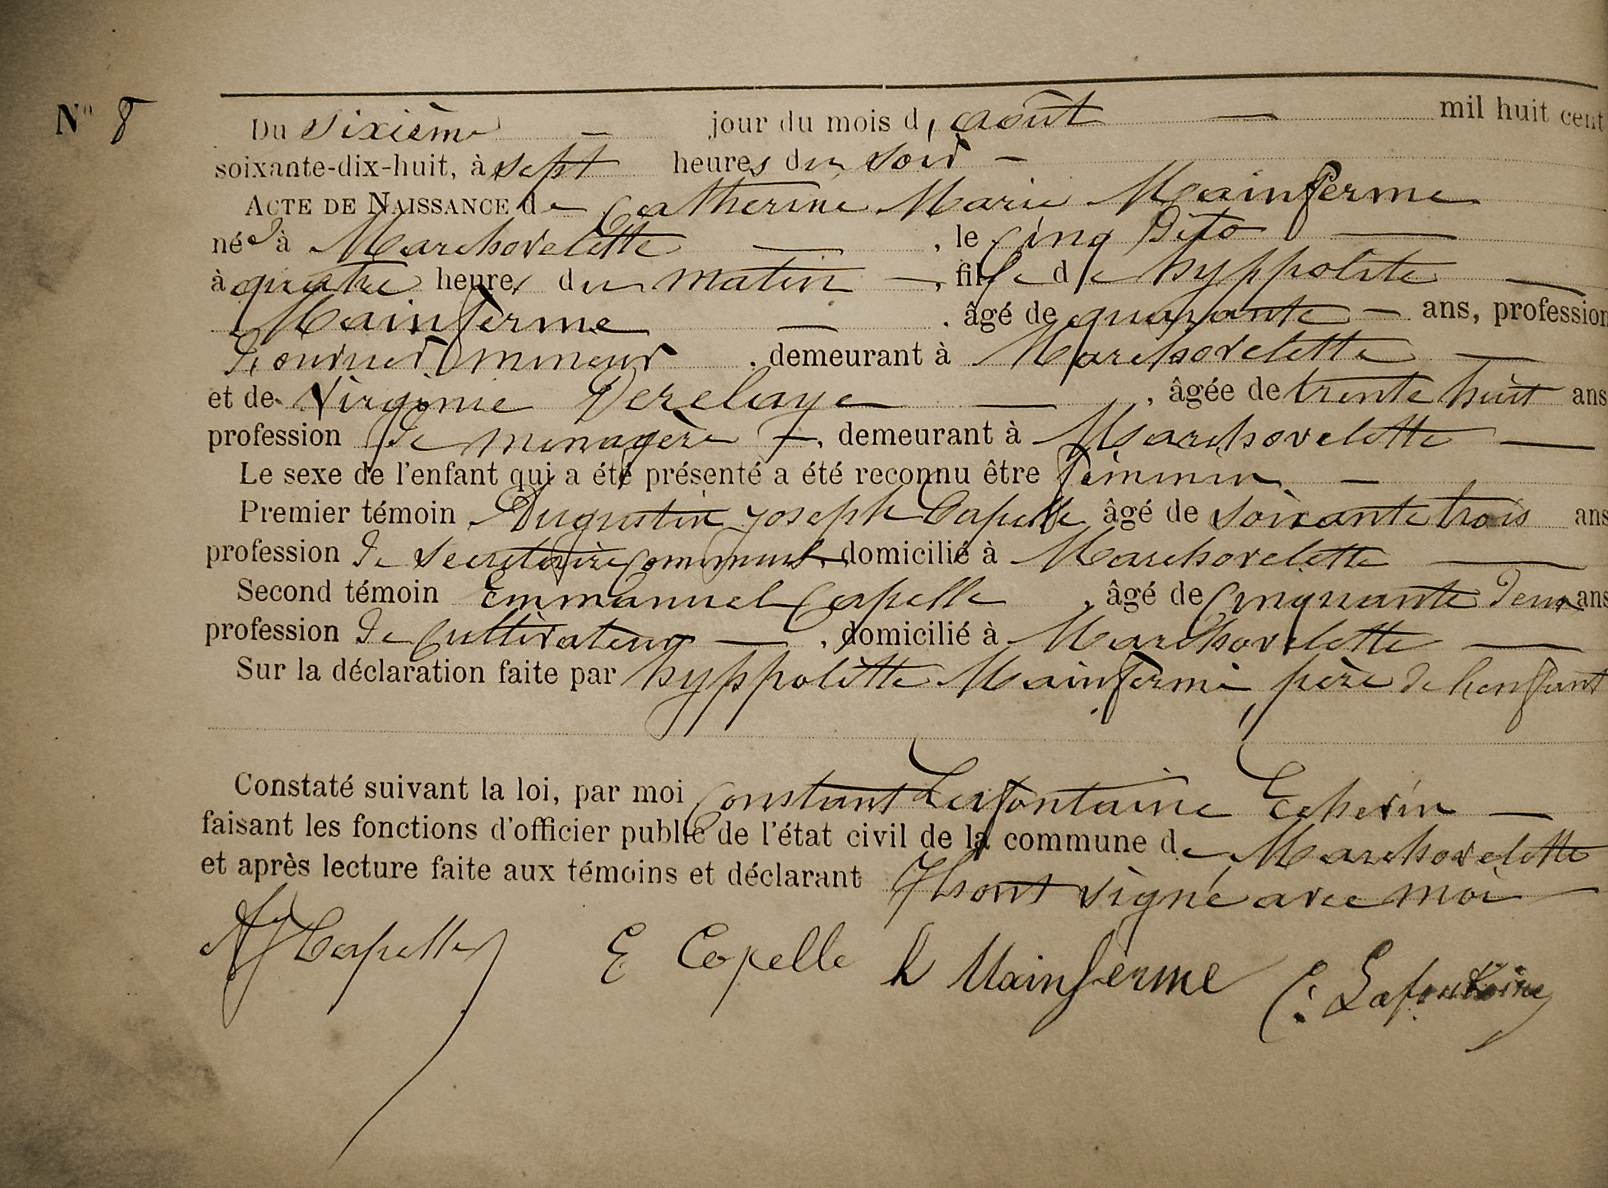 N° 8
Du sixième jour du mois d'août mil huit cent
soixante-dix-huit, à sept heures du soir
ACTE DE NAISSANCE de Catherine Marie Mainferme
née à Marchovelette, le cinq dito
à quatre heures du matin, fille de hyppolite
Mainferme, âgé de quarante ans, profession
d'ouvrier mineur, demeurant à Marchovelette
et de Virginie Derelaye, âgée de trente huit ans
profession de menagère, demeurant à Marchovelette
Le sexe de l'enfant qui a été présenté a été reconnu être féminin
Premier témoin Augustin joseph Capelle âgé de soixante trois ans
profession de secretaire communal domicilié à Marchovelette
Second témoin Emmanuel Capelle, âgé de cinquante deux ans
profession de cultivateur, domicilié à Marchovelette
Sur la déclaration faite par hyppolitte Mainferme, père de l'enfant
Constaté suivant la loi, par moi Constant Lafontaine Echevin
faisant les fonctions d'officier public de l'état civil de la commune de Marchovelette
et après lecture faite aux témoins et déclarant Ils ont signé avec moi
AJ Capelle E Capelle h Mainferme C. Lafontaine